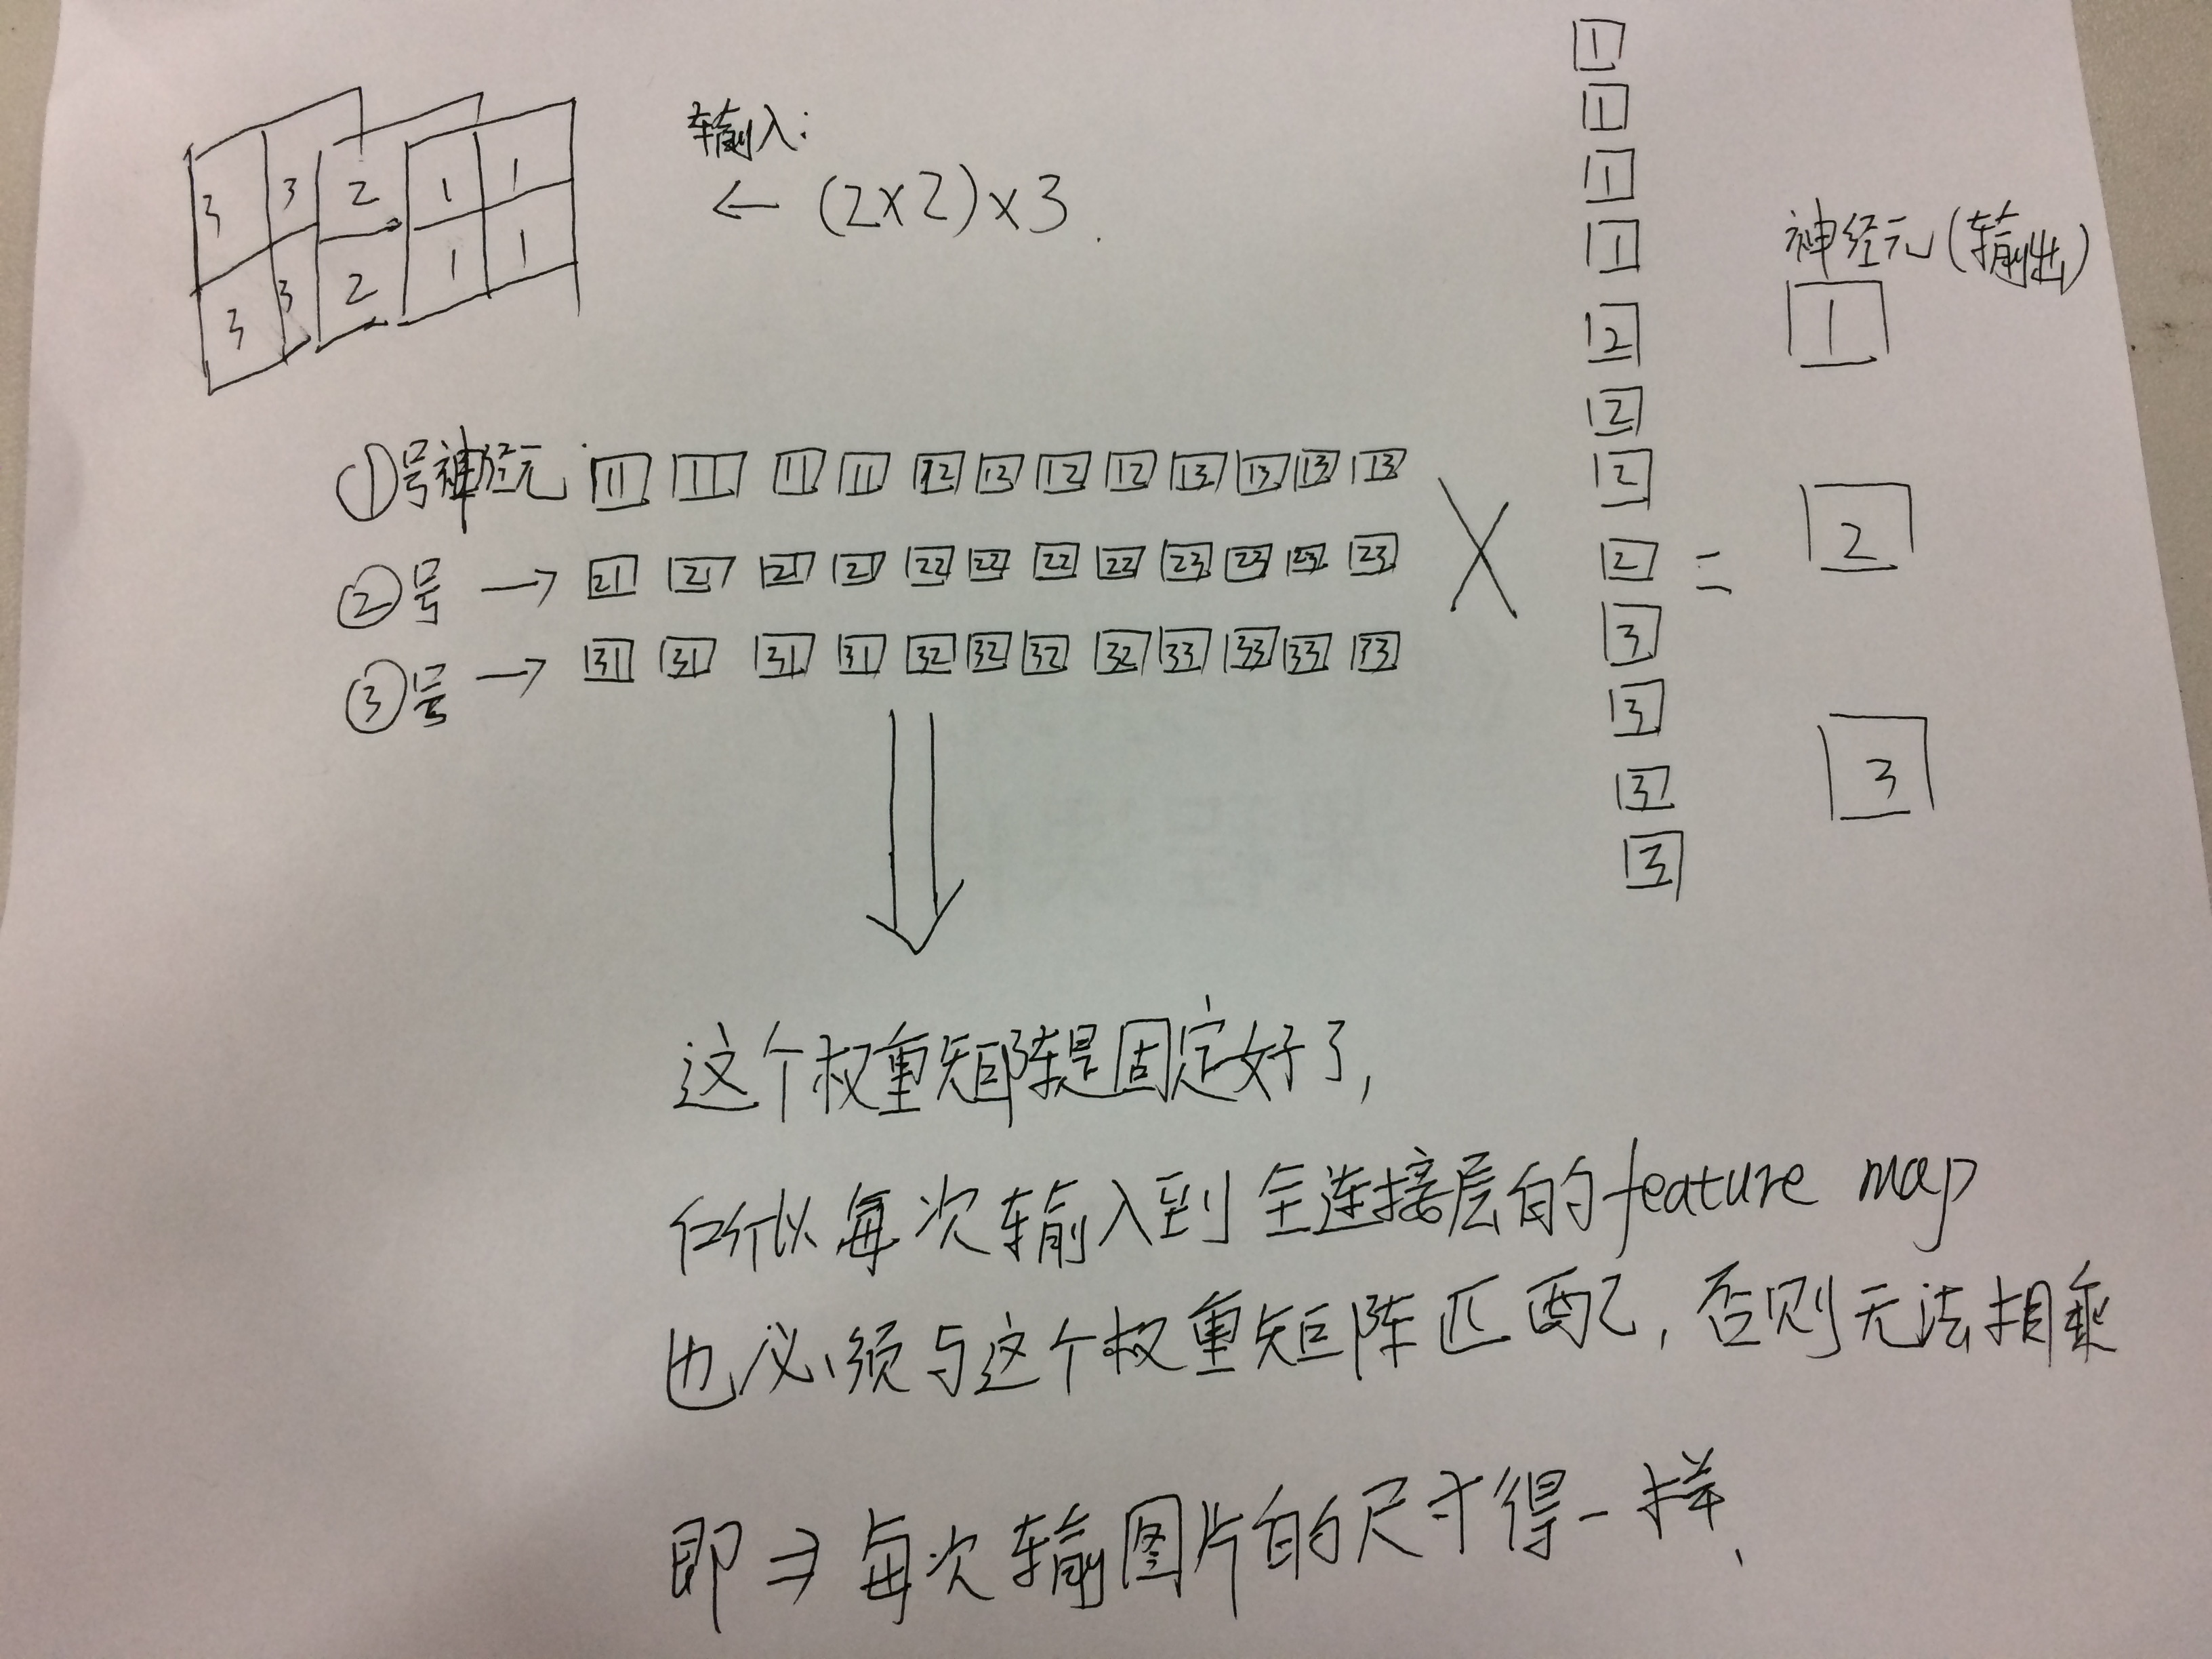 输入:
← (2×2)×3
3 3 2 1 1
3 3 2 1 1
1
1
1
1
2
2
2
2
3
3
3
3
神经元(输出)
1
=
2
3
①号神经元 11 11 11 11 12 12 12 12 13 13 13 13 ×
②号 → 21 21 21 21 22 22 22 22 23 23 23 23
③号 → 31 31 31 31 32 32 32 32 33 33 33 33
这个权重矩阵是固定好了,
所以每次输入到全连接层的feature map
也必须与这个权重矩阵匹配,否则无法相乘
即⇒每次输图片的尺寸得一样、